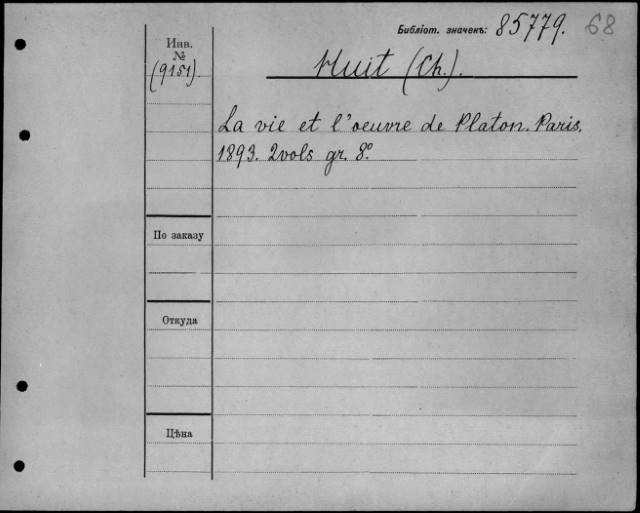 Библіот. значекъ: 85779. 68
Инв.
№
(9151).
Huit (Ch.).
La vie et l'oeuvre de Platon. Paris.
1893. 2vols gr. 8º.
По заказу
Откуда
Цѣна